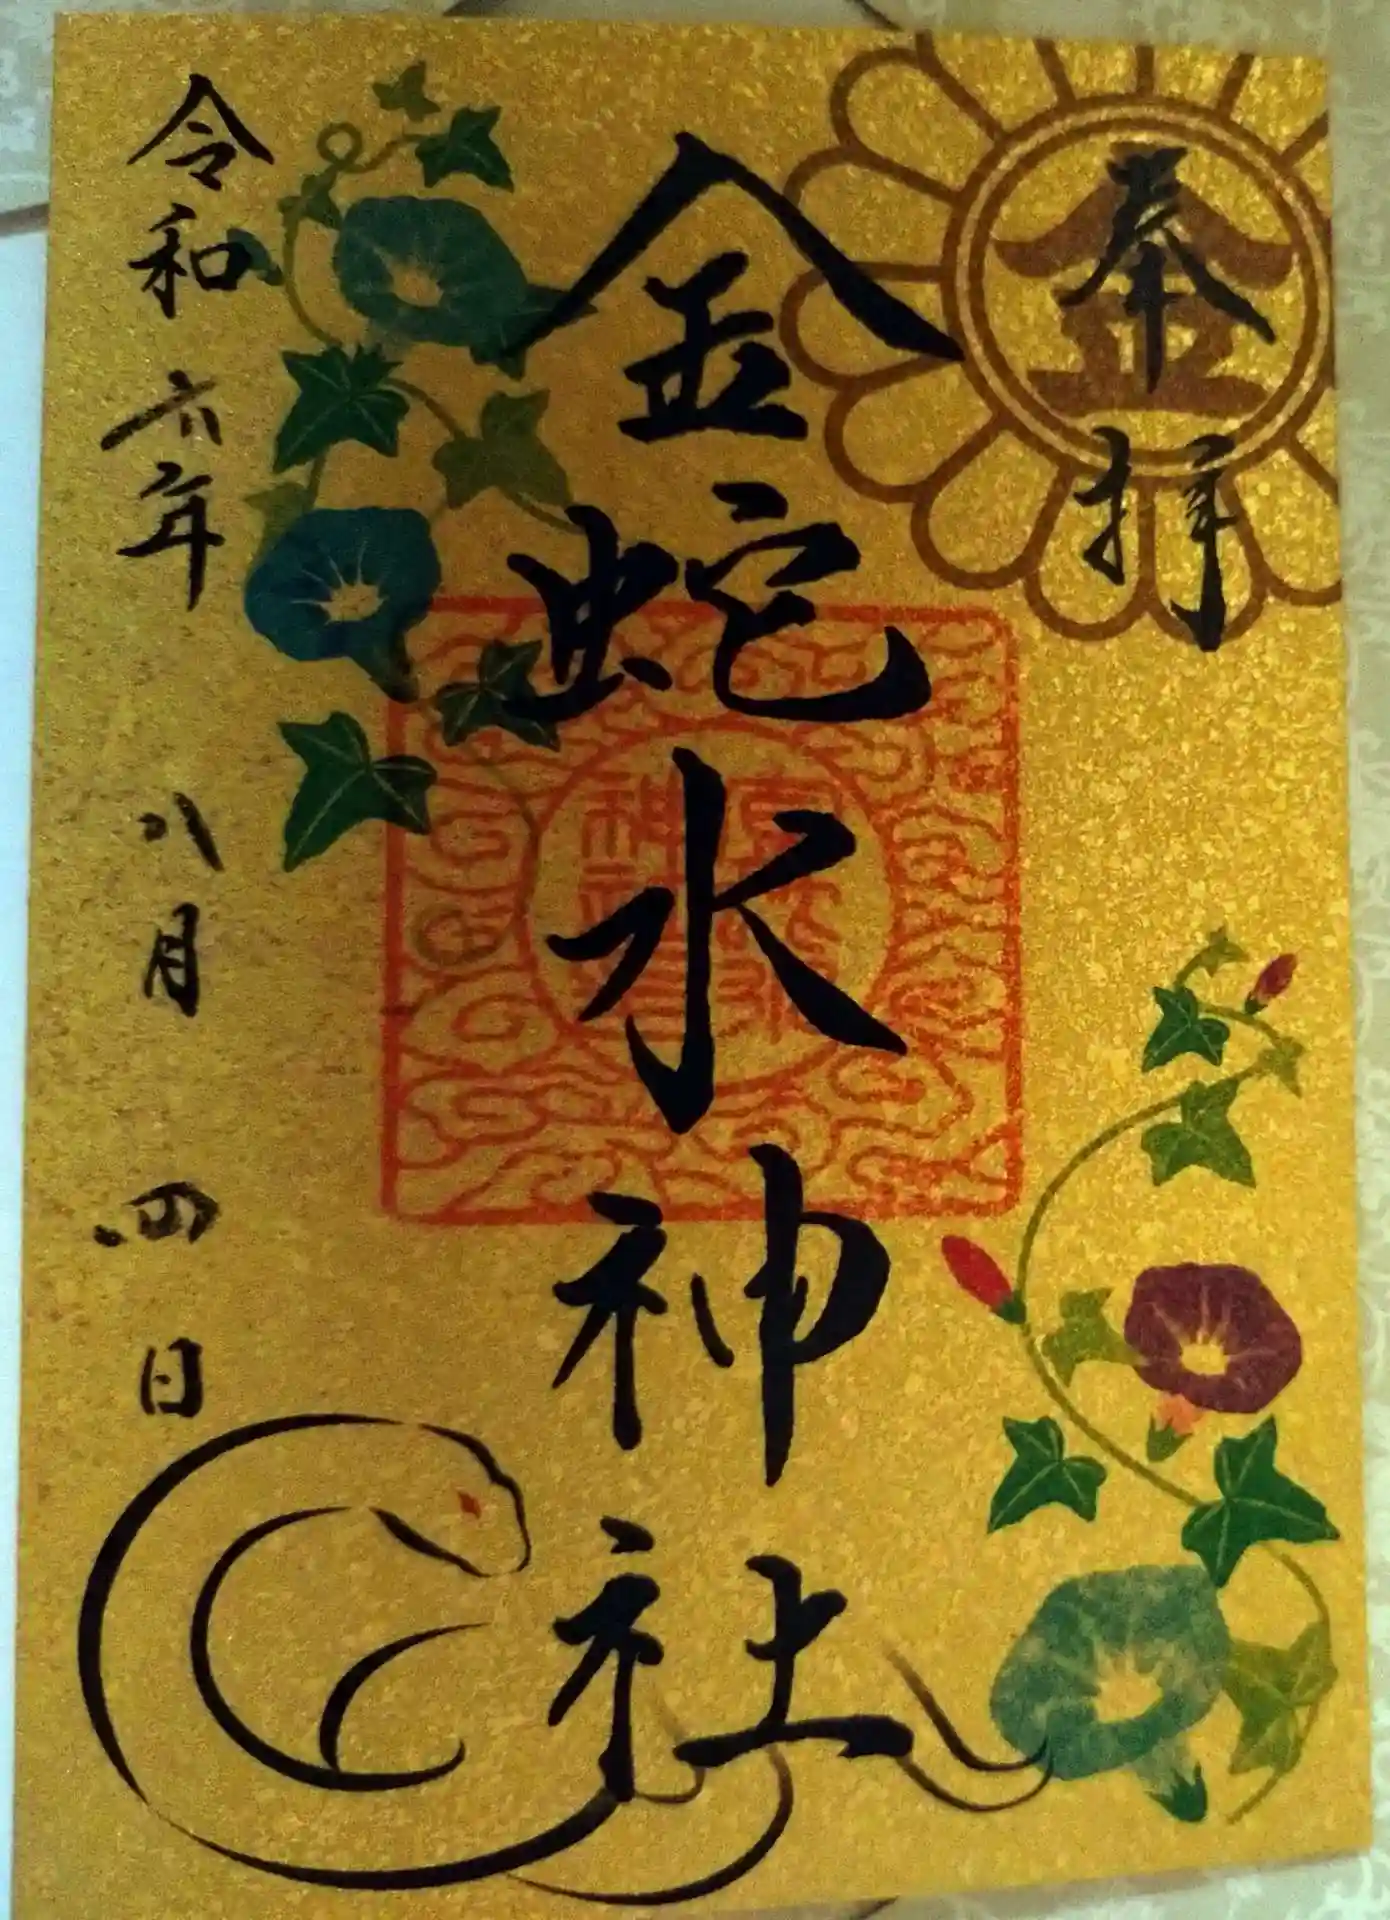 奉拝
金
金蛇水神社
令和六年 八月 四日